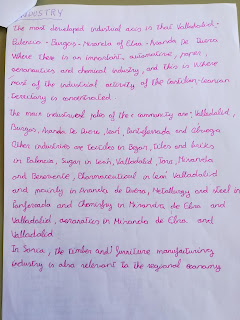 INDUSTRY
The most developed industrial axis is that Valladolid-
Palencia - Burgos - Miranda of Ebro - Aranda De Duero
Where there is an important automotive, paper,
aeronautics and chemical industry, and this is where
most of the industrial activity of the Castilian-Leonese
territory is concentrated.
The main industrial poles of the community are: Valladolid,
Burgos, Aranda De Duero, León, Ponferrada and Ólvega
Other industries are textiles in Bejar, tiles and bricks
in Palencia, Sugar in León, Valladolid, Toro, Miranda
and Benavente, Pharmaceutical in León Valladolid
and mainly in Aranda de Duero, Metallurgy and steel in
Ponferrada and Chemistry in Miranda de Ebro and
Valladolid, aeronautics in Miranda de Ebro and
Valladolid
In Soria, the timber and furniture manufacturing
industry is also relevant to the regional economy